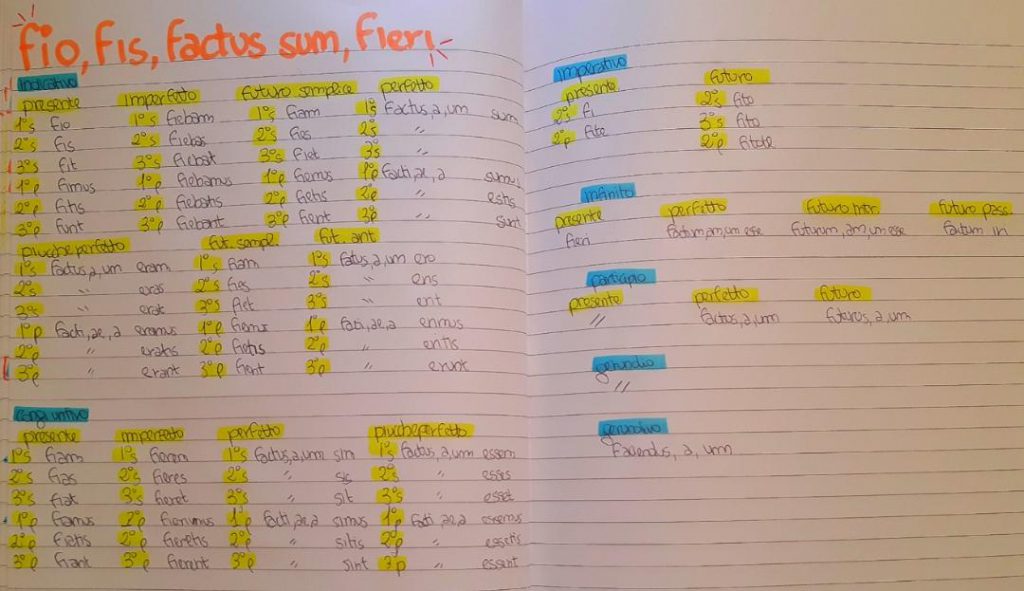 fio, fis, factus sum, fieri
indicativo
presente imperfetto futuro semplice perfetto
1°s fio 1°s fiebam 1°s fiam 1°s factus,a,um sum
2°s fis 2°s fiebas 2°s fies 2°s "
3°s fit 3°s fiebat 3°s fiet 3°s "
1°p fimus 1°p fiebamus 1°p fiemus 1°p facti,ae,a sumus
2°p fitis 2°p fiebatis 2°p fietis 2°p " estis
3°p fiunt 3°p fiebant 3°p fient 3°p " sunt
piuccheperfetto fut. sempl. fut. ant
1°s factus,a,um eram 1°s fiam 1°s fatus,a,um ero
2°s " eras 2°s fies 2°s " eris
3°s " erat 3°s fiet 3°s " erit
1°p facti,ae,a eramus 1°p fiemus 1°p facti,ae,a erimus
2°p " eratis 2°p fietis 2°p " eritis
3°p " erant 3°p fient 3°p " erunt
congiuntivo
presente imperfetto perfetto piuccheperfetto
1°s fiam 1°s fierem 1°s factus,a,um sim 1°s factus,a,um essem
2°s fias 2°s fieres 2°s " sis 2°s " esses
3°s fiat 3°s fieret 3°s " sit 3°s " esset
1°p fiamus 1°p fieremus 1°p facti,ae,a simus 1°p facti,ae,a essemus
2°p fietis 2°p fieretis 2°p " sitis 2°p " essetis
3°p fiant 3°p fierent 3°p " sint 3°p " essent
imperativo
presente futuro
2°s fi 2°s fito
2°p fite 3°s fito
2°p fitote
infinito
presente perfetto futuro pass.
fieri factum,am,um esse futurum,am,um esse factum iri
participio
presente perfetto futuro
// factus,a,um futurus,a,um
gerundio
//
gerundivo
faciendus, a, um